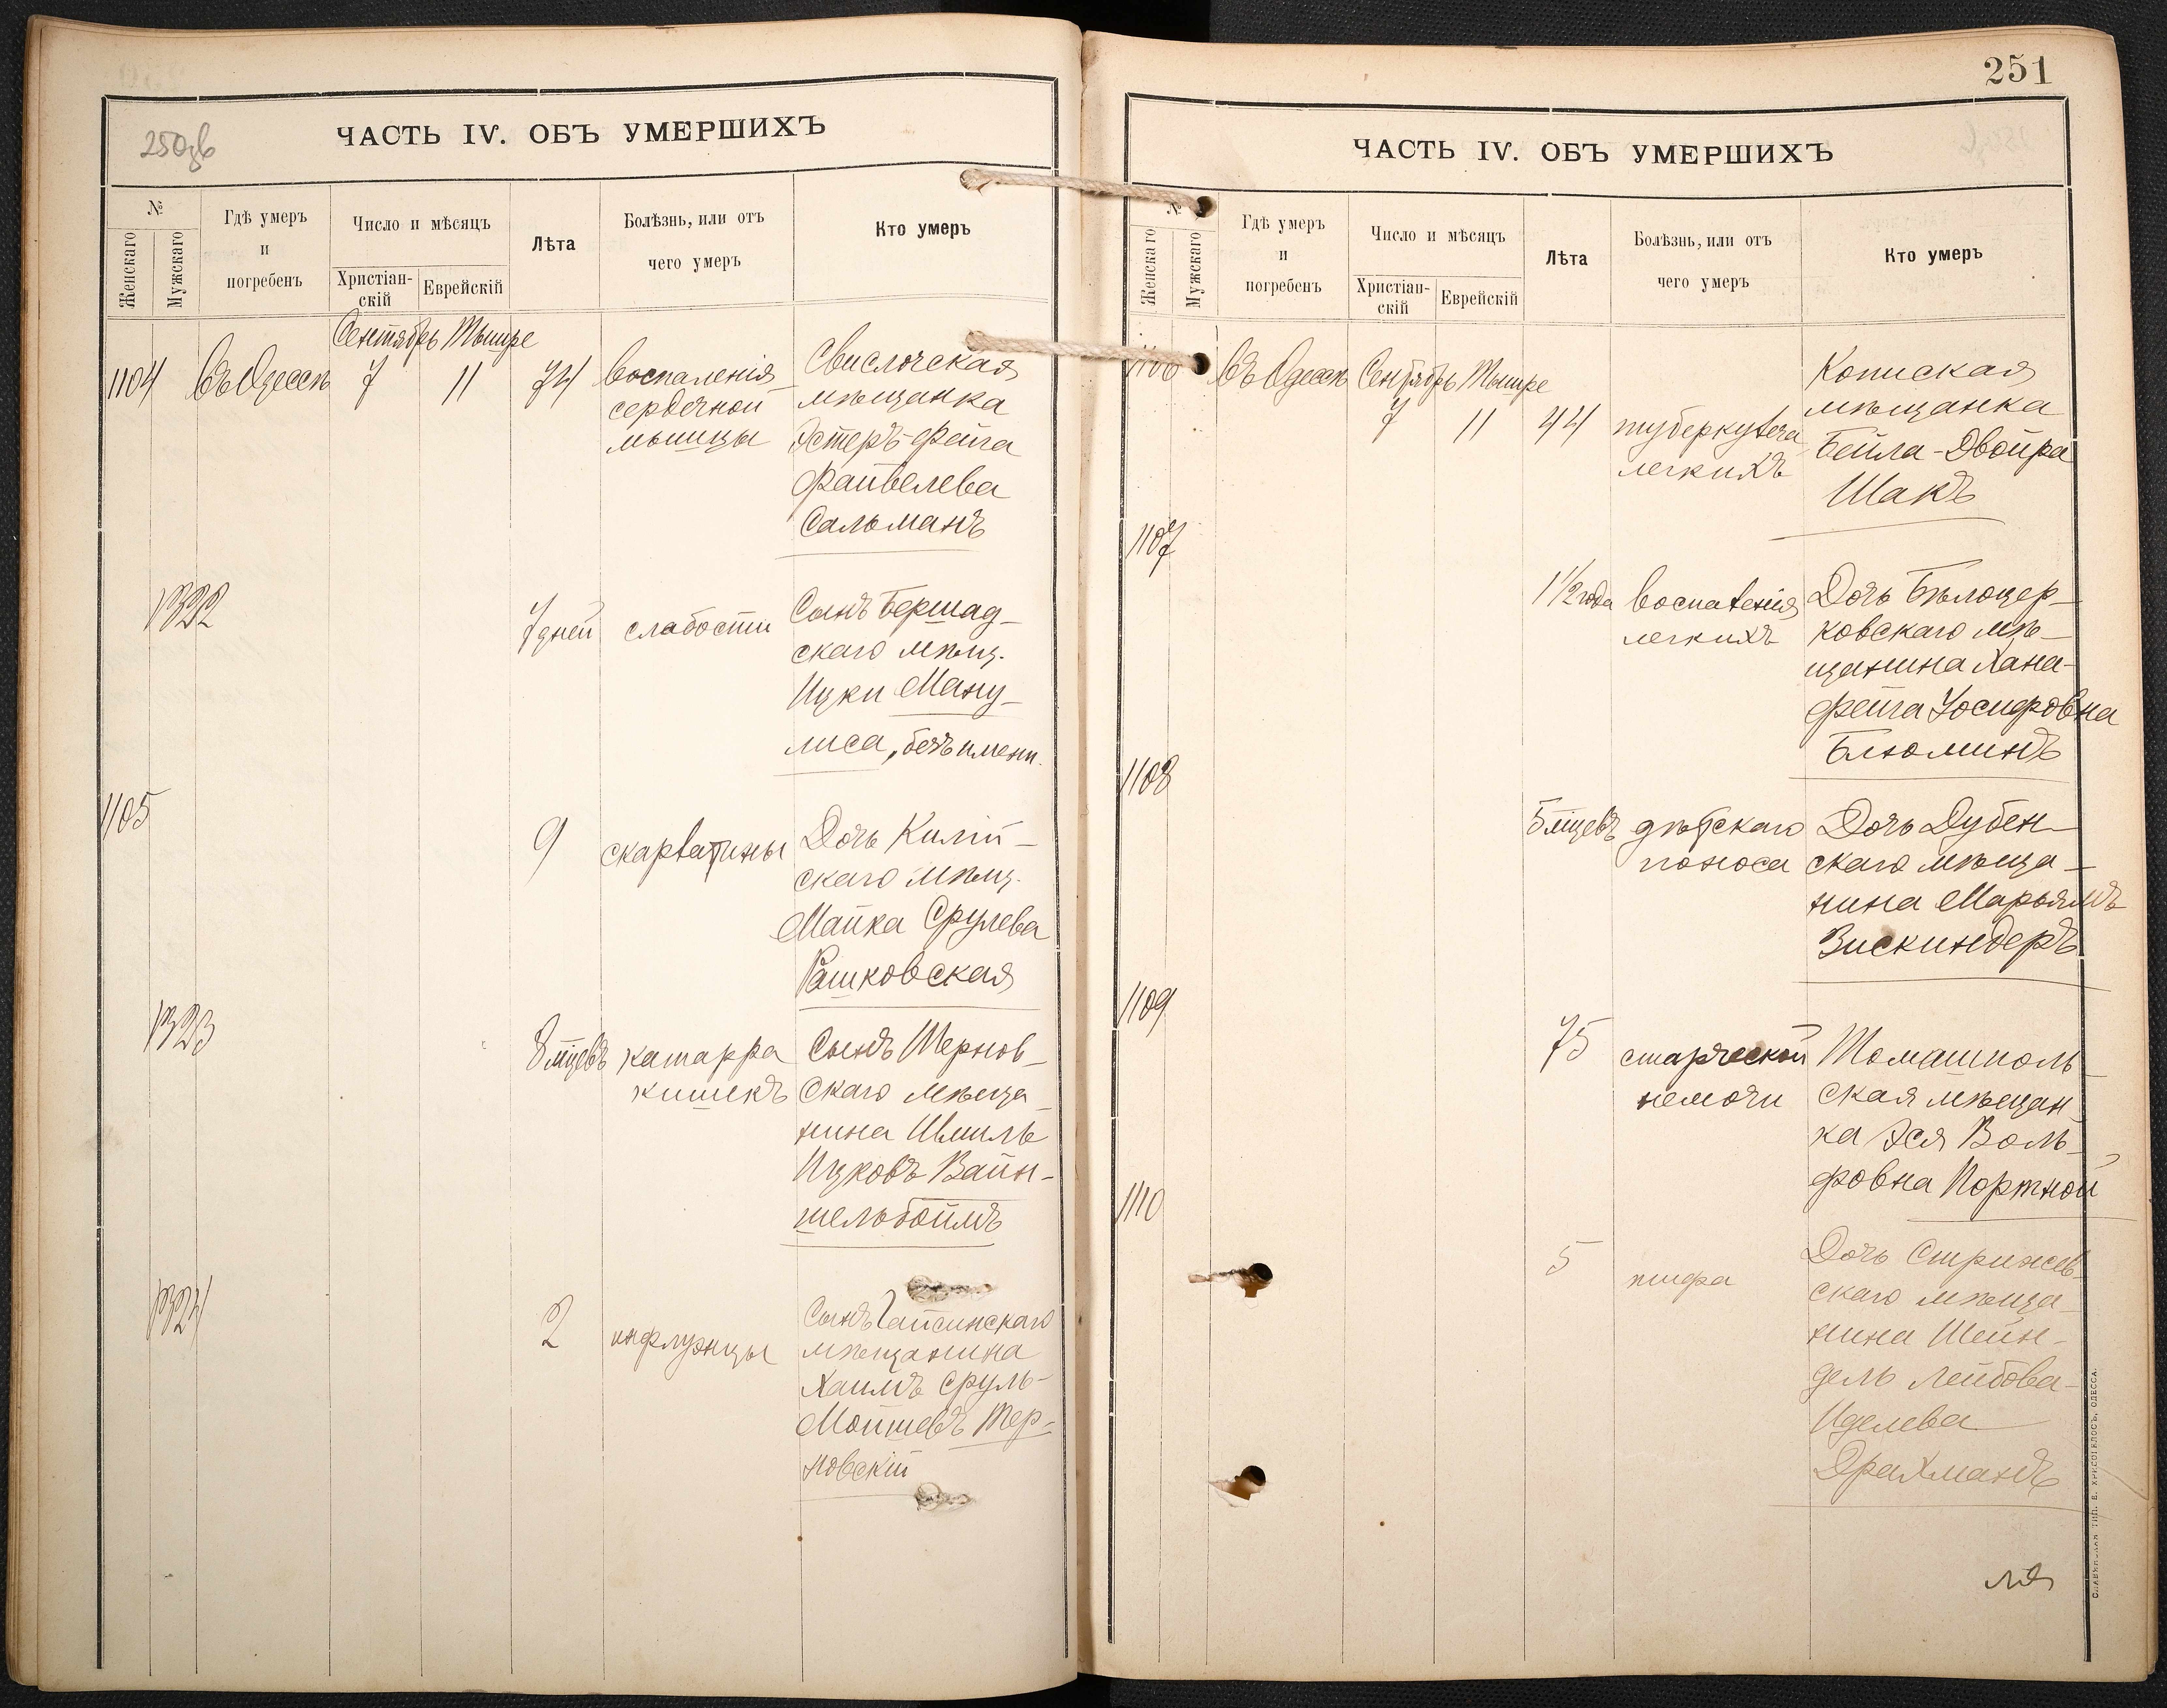 250зв
ЧАСТЬ IV. ОБЪ УМЕРШИХЪ
№
Женскаго
Мужскаго
Гдѣ умеръ
и
погребенъ
Число и мѣсяцъ
Христіан-
скій
Еврейскій
Лѣта
Болѣзнь, или отъ
чего умеръ
Кто умеръ
Сентябрь Тышре
1104 Въ Одессѣ 7 11 74
воспаленія
сердечной
мышцы
Свислочская
мѣщанка
Эстеръ-Фейга
Файвелева
Сальманъ
1322
7 дней слабости
Сынъ Бершад-
скаго мѣщ.
Ицки Ману-
лиса, безъ имени.
1105
9 скарлатины
Дочь Килій-
скаго мѣщ.
Майка Срулева
Рашковская
1323
8 мцевъ катарра
кишекъ
Сынъ Чернов-
скаго мѣща-
нина Шмиль
Ицковъ Вайн-
шельбоймъ
1324
2 инфлуэнцы
Сынъ Гайсинскаго
мѣщанина
Хаимъ Сруль-
Мойшевъ Тер-
новскій
251
ЧАСТЬ IV. ОБЪ УМЕРШИХЪ
№
Женскаго
Мужскаго
Гдѣ умеръ
и
погребенъ
Число и мѣсяцъ
Христіан-
скій
Еврейскій
Лѣта
Болѣзнь, или отъ
чего умеръ
Кто умеръ
1106 Въ Одессѣ Сентябрь Тышре
7 11 44 туберкулеза
легкихъ
Кописская
мѣщанка
Бейла-Двойра
Шакъ
1107
1 1/2 года воспаленія
легкихъ
Дочь Бѣлоцер-
ковскаго мѣ-
щанина Хана-
Фейга Іосифовна
Блюминъ
1108
5 мцевъ дѣтскаго
поноса
Дочь Дубен-
скаго мѣща-
нина Марьямъ
Зискиндеръ
1109
75 старческой
немочи
Томашполь-
ская мѣщан-
ка Эся Воль-
фовна Портной
1110
5 тифа
Дочь Стрижев-
скаго мѣща-
нина Шейн-
дель Лейбова-
Иделева
Драхманъ
СЛАВЯНСКАЯ ТИП. Е. ХРИСОГЕЛОСЪ, ОДЕССА.